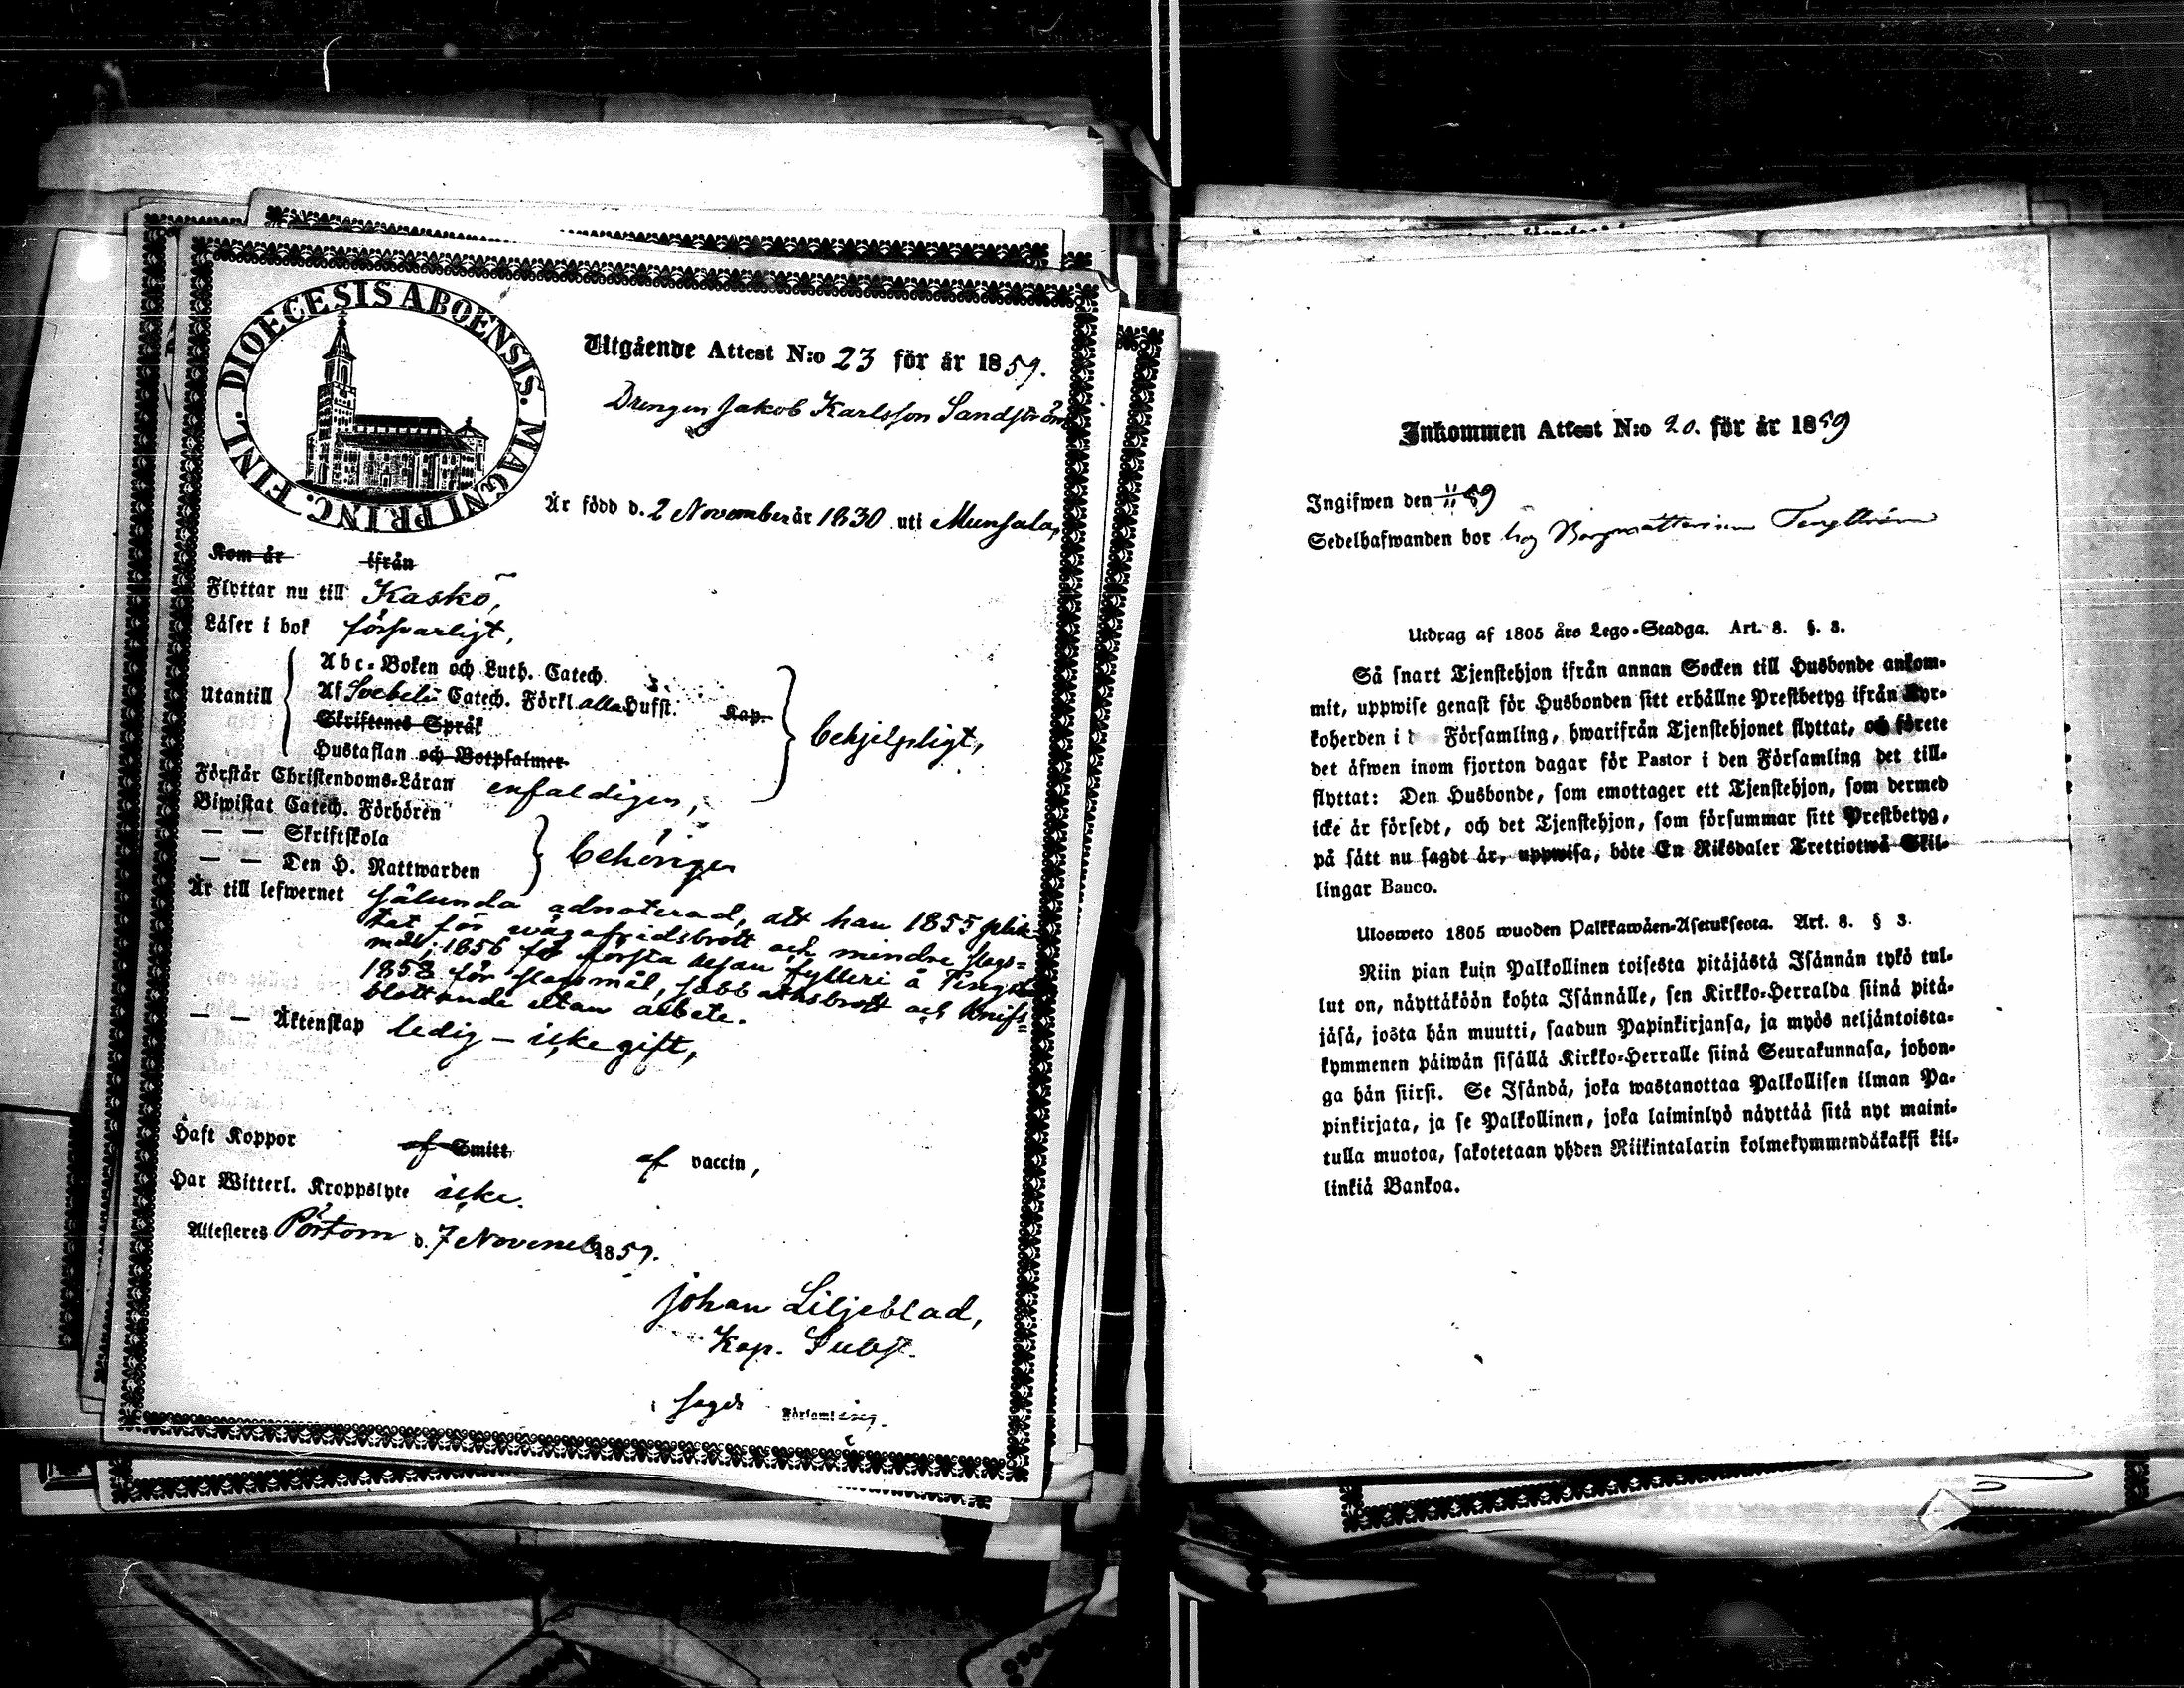 DIOECESIS ABOENSIS. MAGNI PRINC. FINL.
Utgående Attest N:o 23 för år 1859.
Drengen Jakob Karlsson Sandström
Är född d. 2 November år 1830 uti Munsala,
Kom år ifrån
Flyttar nu till Kaskö,
Läser i bok försvarligt,
Utantill
Abc-Boken och Luth. Catech.
Af Svebelii Catech. Förkl. alla Hufst. Kap.
Skriftenes Språk
Hustaflan och Botpsalmer
behjelpligt,
Förstår Christendoms-Läran enfaldigen,
Biwistat Catech. Förhören
— — Skriftskola
— — Den H. Nattwarden
behörigen
Är till lefwernet sålunda adnoterad, att han 1855 plik-
tat för vägafridsbrott och mindre slags=
mål; 1856 för första resan fylleri å
1858 för slagsmål, sabbathsbrott och knifs=
blottande utan arbete.
— — Äktenskap ledig — icke gift,
Haft Koppor af Smitt af vaccin,
Har Witterl. Kroppslyte icke.
Attesteres Pörtom d. 7 Novemb 1859.
Johan Liljeblad,
Kap. Subst.
Församling.
Inkommen Attest N:o 20. för år 1859
Ingifwen den 11/11 59
Sedelhafwanden bor hos Tengström
Utdrag af 1805 års Lego-Stadga. Art. 8. §. 3.
Så snart Tjenstehjon ifrån annan Socken till Husbonde ankom-
mit, uppwise genast för Husbonden sitt erhållne Prestbetyg ifrån Kyr-
koherden i d Församling, hwarifrån Tjenstehjonet flyttat, och förete
det äfwen inom fjorton dagar för Pastor i den Församling det till-
flyttat: Den Husbonde, som emottager ett Tjenstehjon, som dermed
icke är försedt, och det Tjenstehjon, som försummar sitt Prestbetyg,
på sätt nu sagdt är, uppwisa, böte En Riksdaler Trettiotwå Skil-
lingar Banco.
Ulosweto 1805 wuoden Palkkawäen-Asetuksesta. Art. 8. § 3.
Niin pian kuin Palkollinen toisesta pitäjästä Isännän tykö tul-
lut on, näyttäköön kohta Isännälle, sen Kirkko-Herralda siinä pitä-
jäsä, josta hän muutti, saadun Papinkirjansa, ja myös neljäntoista-
kymmenen päiwän sisällä Kirkko-Herralle siinä Seurakunnasa, johon-
ga hän siirsi. Se Isändä, joka wastanottaa Palkollisen ilman Pa-
pinkirjata, ja se Palkollinen, joka laiminlyö näyttää sitä nyt maini-
tulla muotoa, sakotetaan yhden Riikintalarin kolmekymmendäkaksi kil-
linkiä Bankoa.